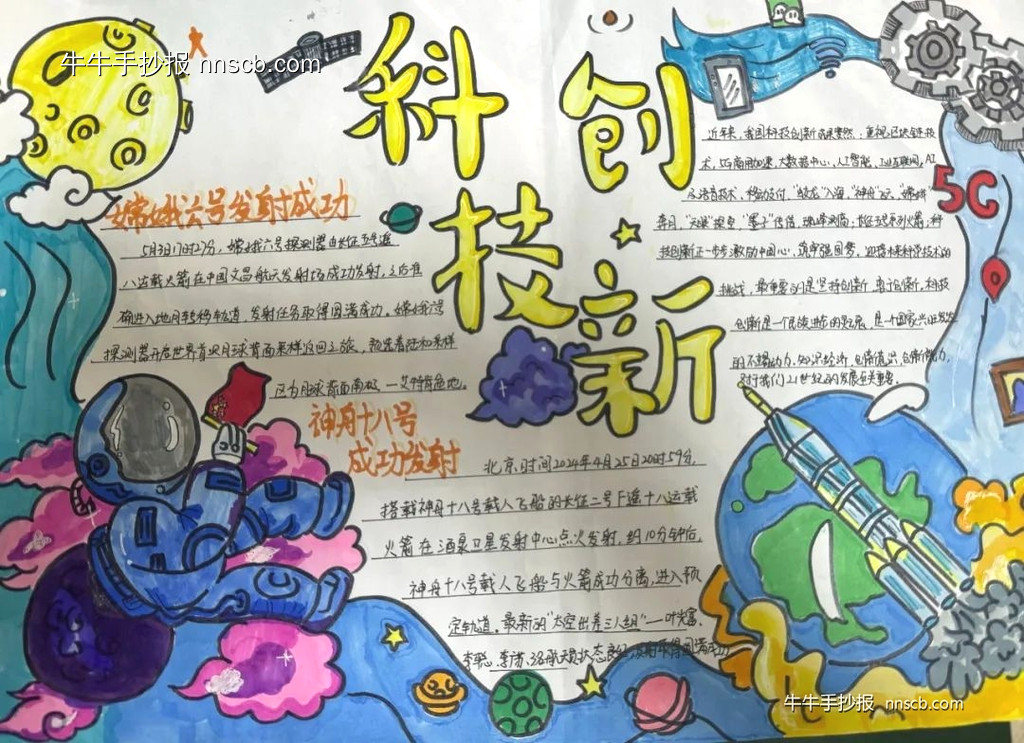 牛牛手抄报 nnscb.com
科创
技新
5G
嫦娥六号发射成功
5月3日17时27分，嫦娥六号探测器由长征五号遥
八运载火箭在中国文昌航天发射场成功发射，之后准
确进入地月转移轨道，发射任务取得圆满成功。嫦娥六号
探测器开启世界首次月球背面采样返回之旅，预选着陆和采样
区为月球背面南极-艾特肯盆地。
神舟十八号
成功发射
北京时间2024年4月25日20时59分，
搭载神舟十八号载人飞船的长征二号F遥十八运载
火箭在酒泉卫星发射中心点火发射，约10分钟后，
神舟十八号载人飞船与火箭成功分离，进入预
定轨道。最新的"太空出差三人组"——叶光富、
李聪、李广苏、航天员状态良好，发射取得圆满成功
近年来，我国科技创新成果斐然：重视区块链技
术，5G商用加速，大数据中心，人工智能，工业互联网，AI
及语音技术，移动支付，"蛟龙"入海，"神舟"飞天，"嫦娥"
奔月，"天眼"探空，"墨子"传信，珠峰测高，长征系列火箭；科
技创新正一步步激励中国心，筑牢强国梦，迎接未来科学技术的
挑战，最重要的是坚持创新，勇于创新，科技
创新是一个民族进步的灵魂，是一个国家兴旺发达
的不竭动力，知识经济，创新意识，创新能力，
对于我们21世纪的发展至关重要。
牛牛手抄报 nnscb.com